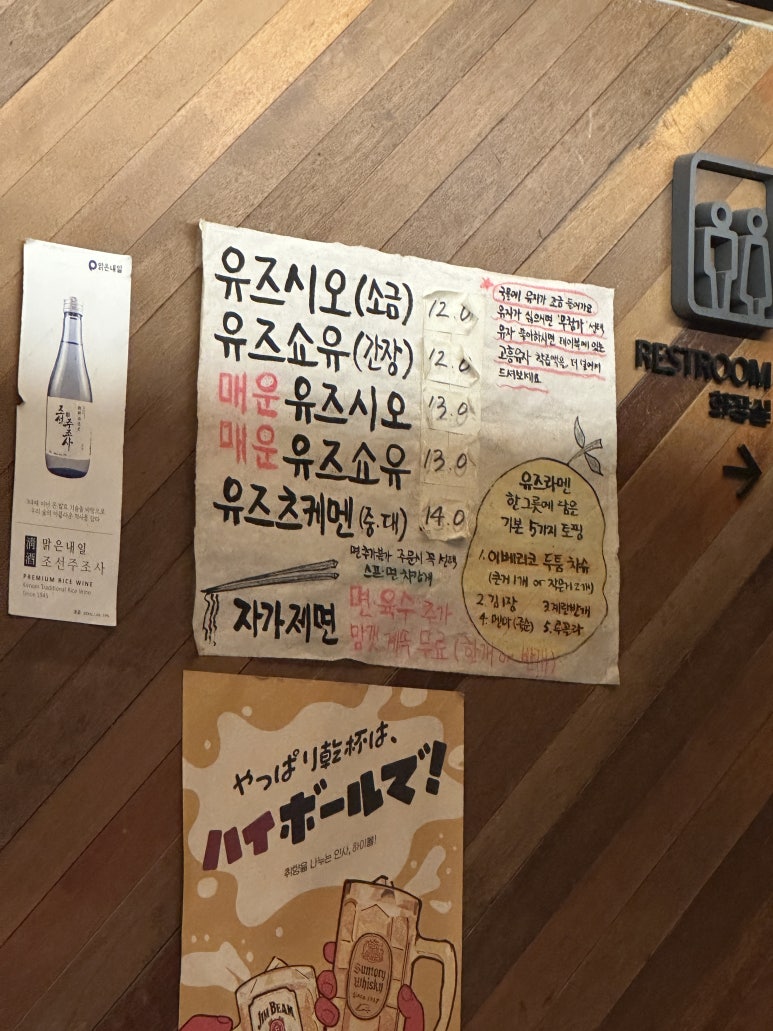 맑은내일
조선주조사
우리 술의 아름다운 역사를 담다
清酒
맑은내일
조선주조사
PREMIUM RICE WINE
Korean Traditional Rice Wine
Since 1945
유즈시오(소금) 12.0
유즈쇼유(간장) 12.0
매운 유즈시오 13.0
매운 유즈쇼유 13.0
유즈츠케멘(중.대) 14.0
면추가불가 주문시 꼭 선택
스프·면 차갑게
자가제면
면·육수 추가
맘껏 계속 무료 (한개 or 반개)
국물에 유자가 조금 들어가요
유자가 싫으시면 '무첨가' 선택
유자 좋아하시면 테이블에 있는
고흥유자 착즙액을 더 넣어서
드셔보세요
유즈라멘
한그릇에 담은
기본 5가지 토핑
1. 이베리코 두툼 차슈
(큰거1개 or 작은거2개)
2. 김1장 3. 계란반개
4. 멘마(죽순) 5. 루꼴라
RESTROOM
화장실
やっぱり乾杯は、
ハイボールで!
취향을 나누는 인사, 하이볼!
Suntory
Whisky
SINCE 1937
JIM BEAM